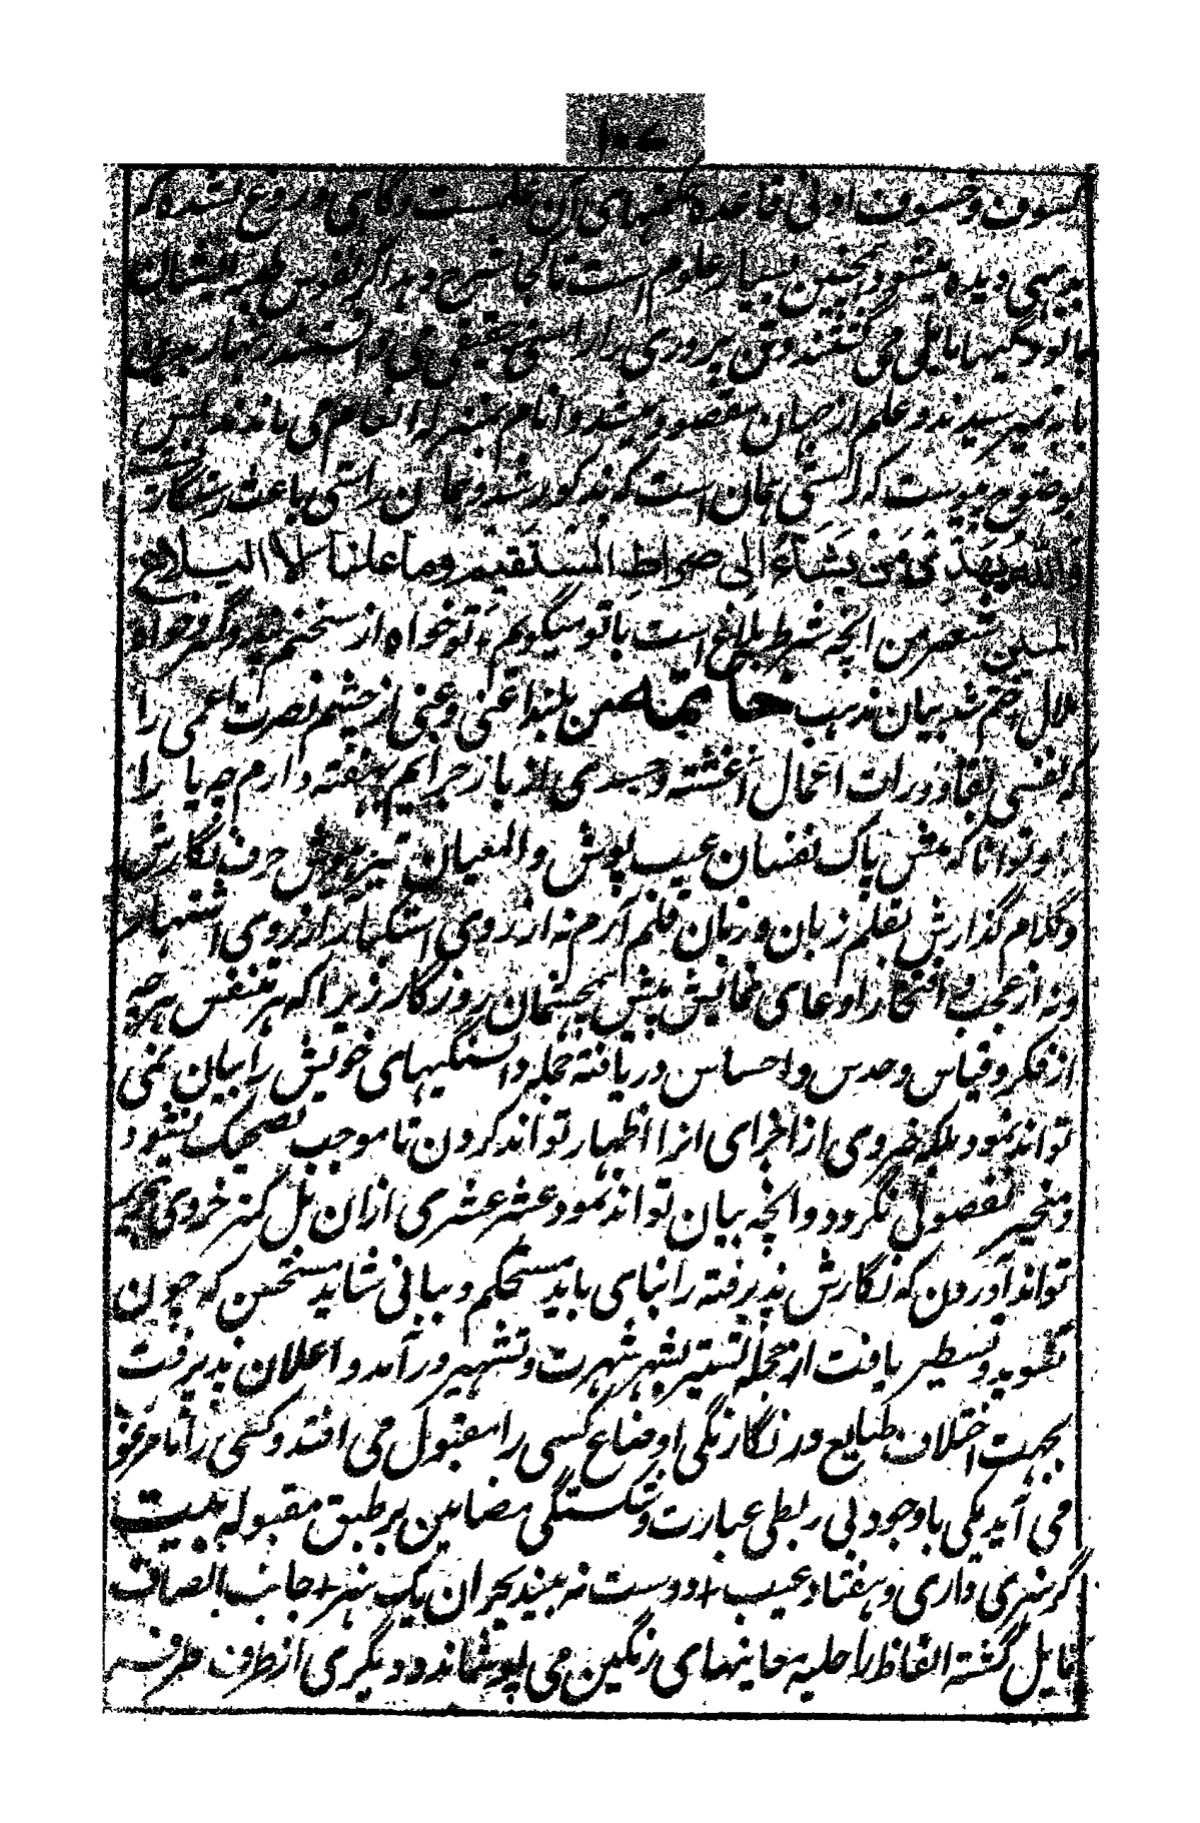 ۱۰۷
کسوف و خسوف ادنی قاعده آن علمست و گاهی دروغ نشده که
بدیهی دیده میشود همچنین بسیار علوم است تا کجا شرح دهد اگر نفوس
مایل می گشتند و تن پروری را راستی حقیقی می دانستند
علم از جهان مقصود میشد و انام بمنزله انعام می ماندند پس
بوضوح پیوست که راستی همان است که مذکور شد و همان راستی باعث رستگاری
والله یهدی من یشاء الی صراط المستقیم وما علینا الا البلاغ
المبین شعر من آنچه شرط بلاغ است با تو میگویم تو خواه از سخنم پند گیر و خواه
ملال ختم شد بیان مذهب خاتمه من بلید اغنی و غبی از چشم نصرت اعمی را
که نفسی بقاذورات اعمال آغشته و جسدی از بار جرایم نهفته دارم چه یارا
و توانا که پیش پاک نفسان عیب پوش و المعیان تیز هوش حرف نگارش
و کلام گذارش بقلم زبان و زبان قلم آرم نه از روی استکبار از روی اشتهار
و نه از عجب و افتخار ادعای نمایش پیش همچشمان روزگار زیرا که هر متنفس هر چه
از فکر و قیاس و حدس و احساس دریافته جمله دانستگیهای خویش را بیان نمی
تواند نمود بلکه جزوی از اجزای آنرا اظهار تواند کردن تا موجب تضحیک نشود
و منجر بفضولی نگردد و آنچه بیان تواند نمود عشر عشری ازان بل کمتر جزوی تحریر
تواند آوردن که نگارش پذیرفته را بنای باید مستحکم و بیانی شاید مستحسن که چون
تسوید و تسطیر یافت از حجله تستیر بشهر شهرت و تشهیر درآمد و اعلان پذیرفت
بجهت اختلاف طبایع و رنگارنگی اوضاع کسی را مقبول می افتد و کسی را نامرغوب
می آید یکی باوجود بی ربطی عبارت و شکستگی مضامین بر طبق مقبوله بیت
گر هنری داری و هفتاد عیب + دوست نه بیند بجز آن یک هنر + جانب انصاف
مایل گشته الفاظ را حلیه معاینهای رنگین می پوشاند و دیگری از طرف